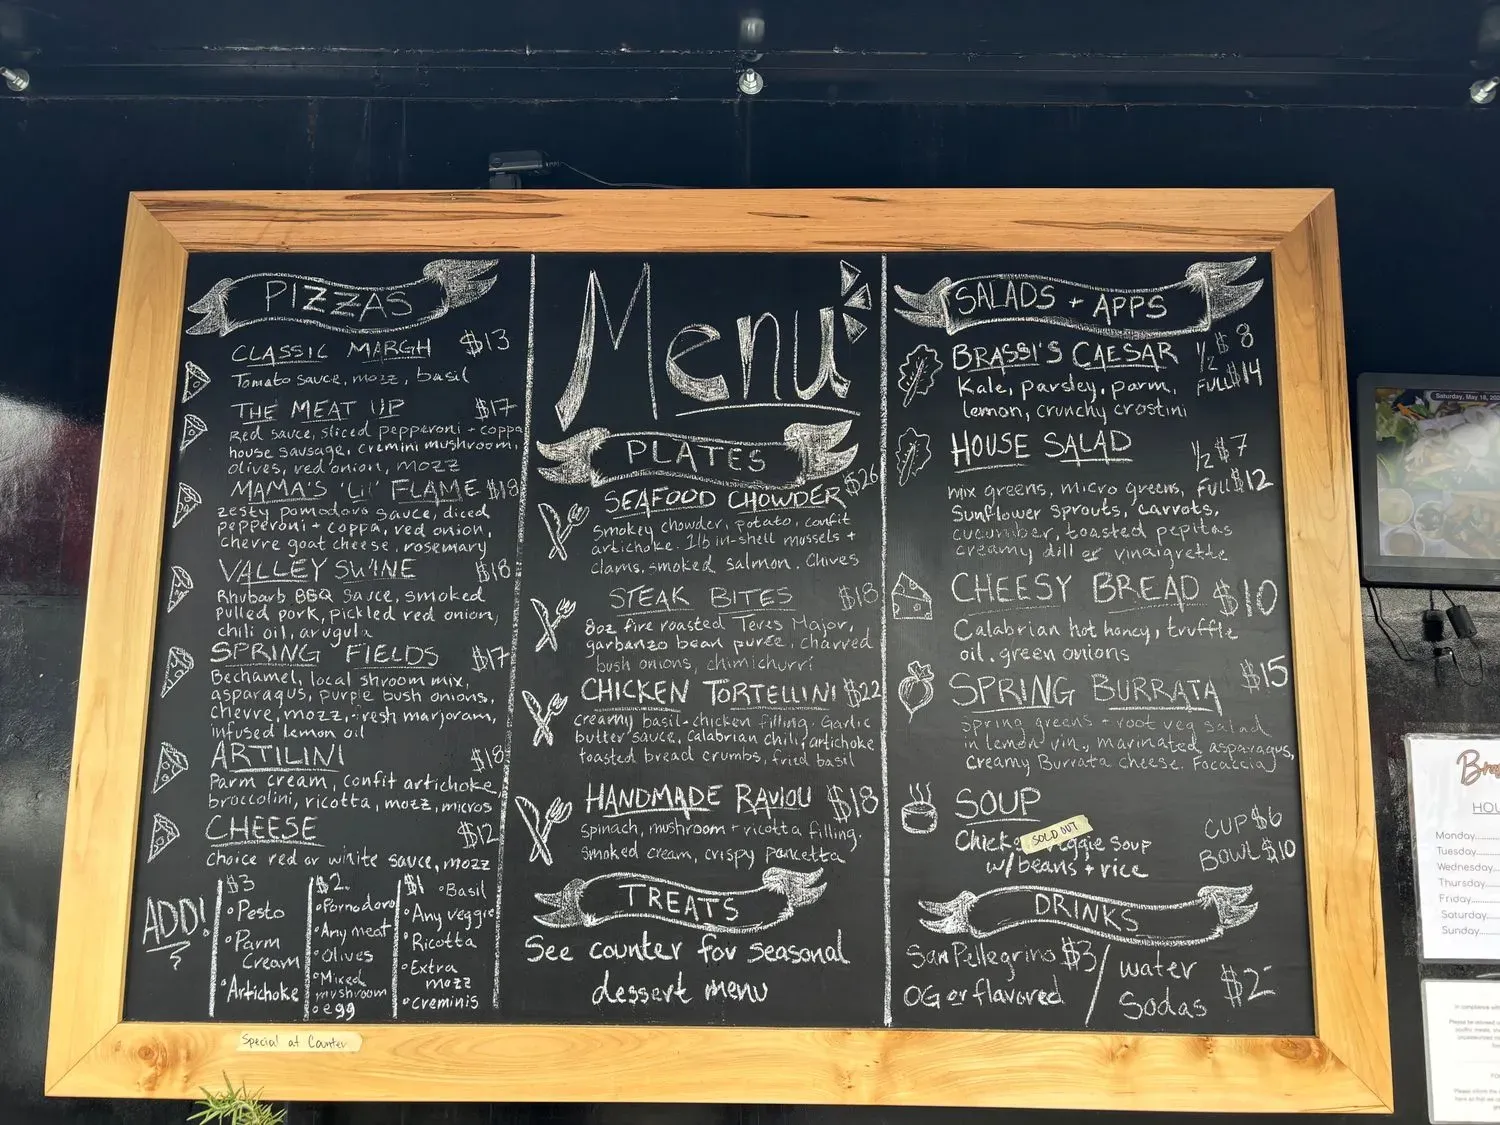 PIZZAS
CLASSIC MARGH $13
Tomato sauce, mozz, basil
THE MEAT UP $17
Red sauce, sliced pepperoni + coppa
house sausage, cremini mushroom,
olives, red onion, mozz
MAMA'S 'Lil' FLAME $18
zesty pomodoro sauce, diced
pepperoni + coppa, red onion,
chevre goat cheese, rosemary
VALLEY SWINE $18
Rhubarb BBQ sauce, smoked
pulled pork, pickled red onion,
chili oil, arugula
SPRING FIELDS $17
Bechamel, local shroom mix,
asparagus, purple bush onions,
chevre, mozz, fresh marjoram,
infused lemon oil
ARTILINI $18
Parm cream, confit artichoke,
broccolini, ricotta, mozz, micros
CHEESE $12
Choice red or white sauce, mozz
ADD!
$3
Pesto
Parm
Cream
Artichoke
$2
Pomodoro
Any meat
Olives
Mixed
mushroom
egg
$1
Basil
Any veggie
Ricotta
Extra
mozz
Creminis
Menu
PLATES
SEAFOOD CHOWDER $26
Smokey chowder, potato, confit
artichoke. 1lb in-shell mussels +
clams, smoked salmon. Chives
STEAK BITES $18
8oz fire roasted Teres Major,
garbanzo bean puree, charred
bush onions, chimichurri
CHICKEN TORTELLINI $22
creamy basil-chicken filling. Garlic
butter sauce, calabrian chili, artichoke
toasted bread crumbs, fried basil
HANDMADE RAVIOLI $18
Spinach, mushroom + ricotta filling.
Smoked cream, crispy pancetta
TREATS
See counter for seasonal
dessert menu
SALADS + APPS
BRASSI'S CAESAR 1/2 $8
Kale, parsley, parm, FULL $14
lemon, crunchy crostini
HOUSE SALAD 1/2 $7
mix greens, micro greens, FULL $12
Sunflower sprouts, carrots,
cucumber, toasted pepitas
creamy dill or vinaigrette
CHEESY BREAD $10
Calabrian hot honey, truffle
oil, green onions
SPRING BURRATA $15
Spring greens + root veg salad
in lemon vin, marinated asparagus,
Creamy Burrata cheese. Focaccia
SOUP
CUP $6
SOLD OUT
soup
w/ beans + rice
BOWL $10
DRINKS
San Pellegrino $3
OG or flavored
water
Sodas $2
Special at Counter
Saturday, May 18,
HOU
Monday
Tuesday
Wednesday
Thursday
Friday
Saturday
Sunday